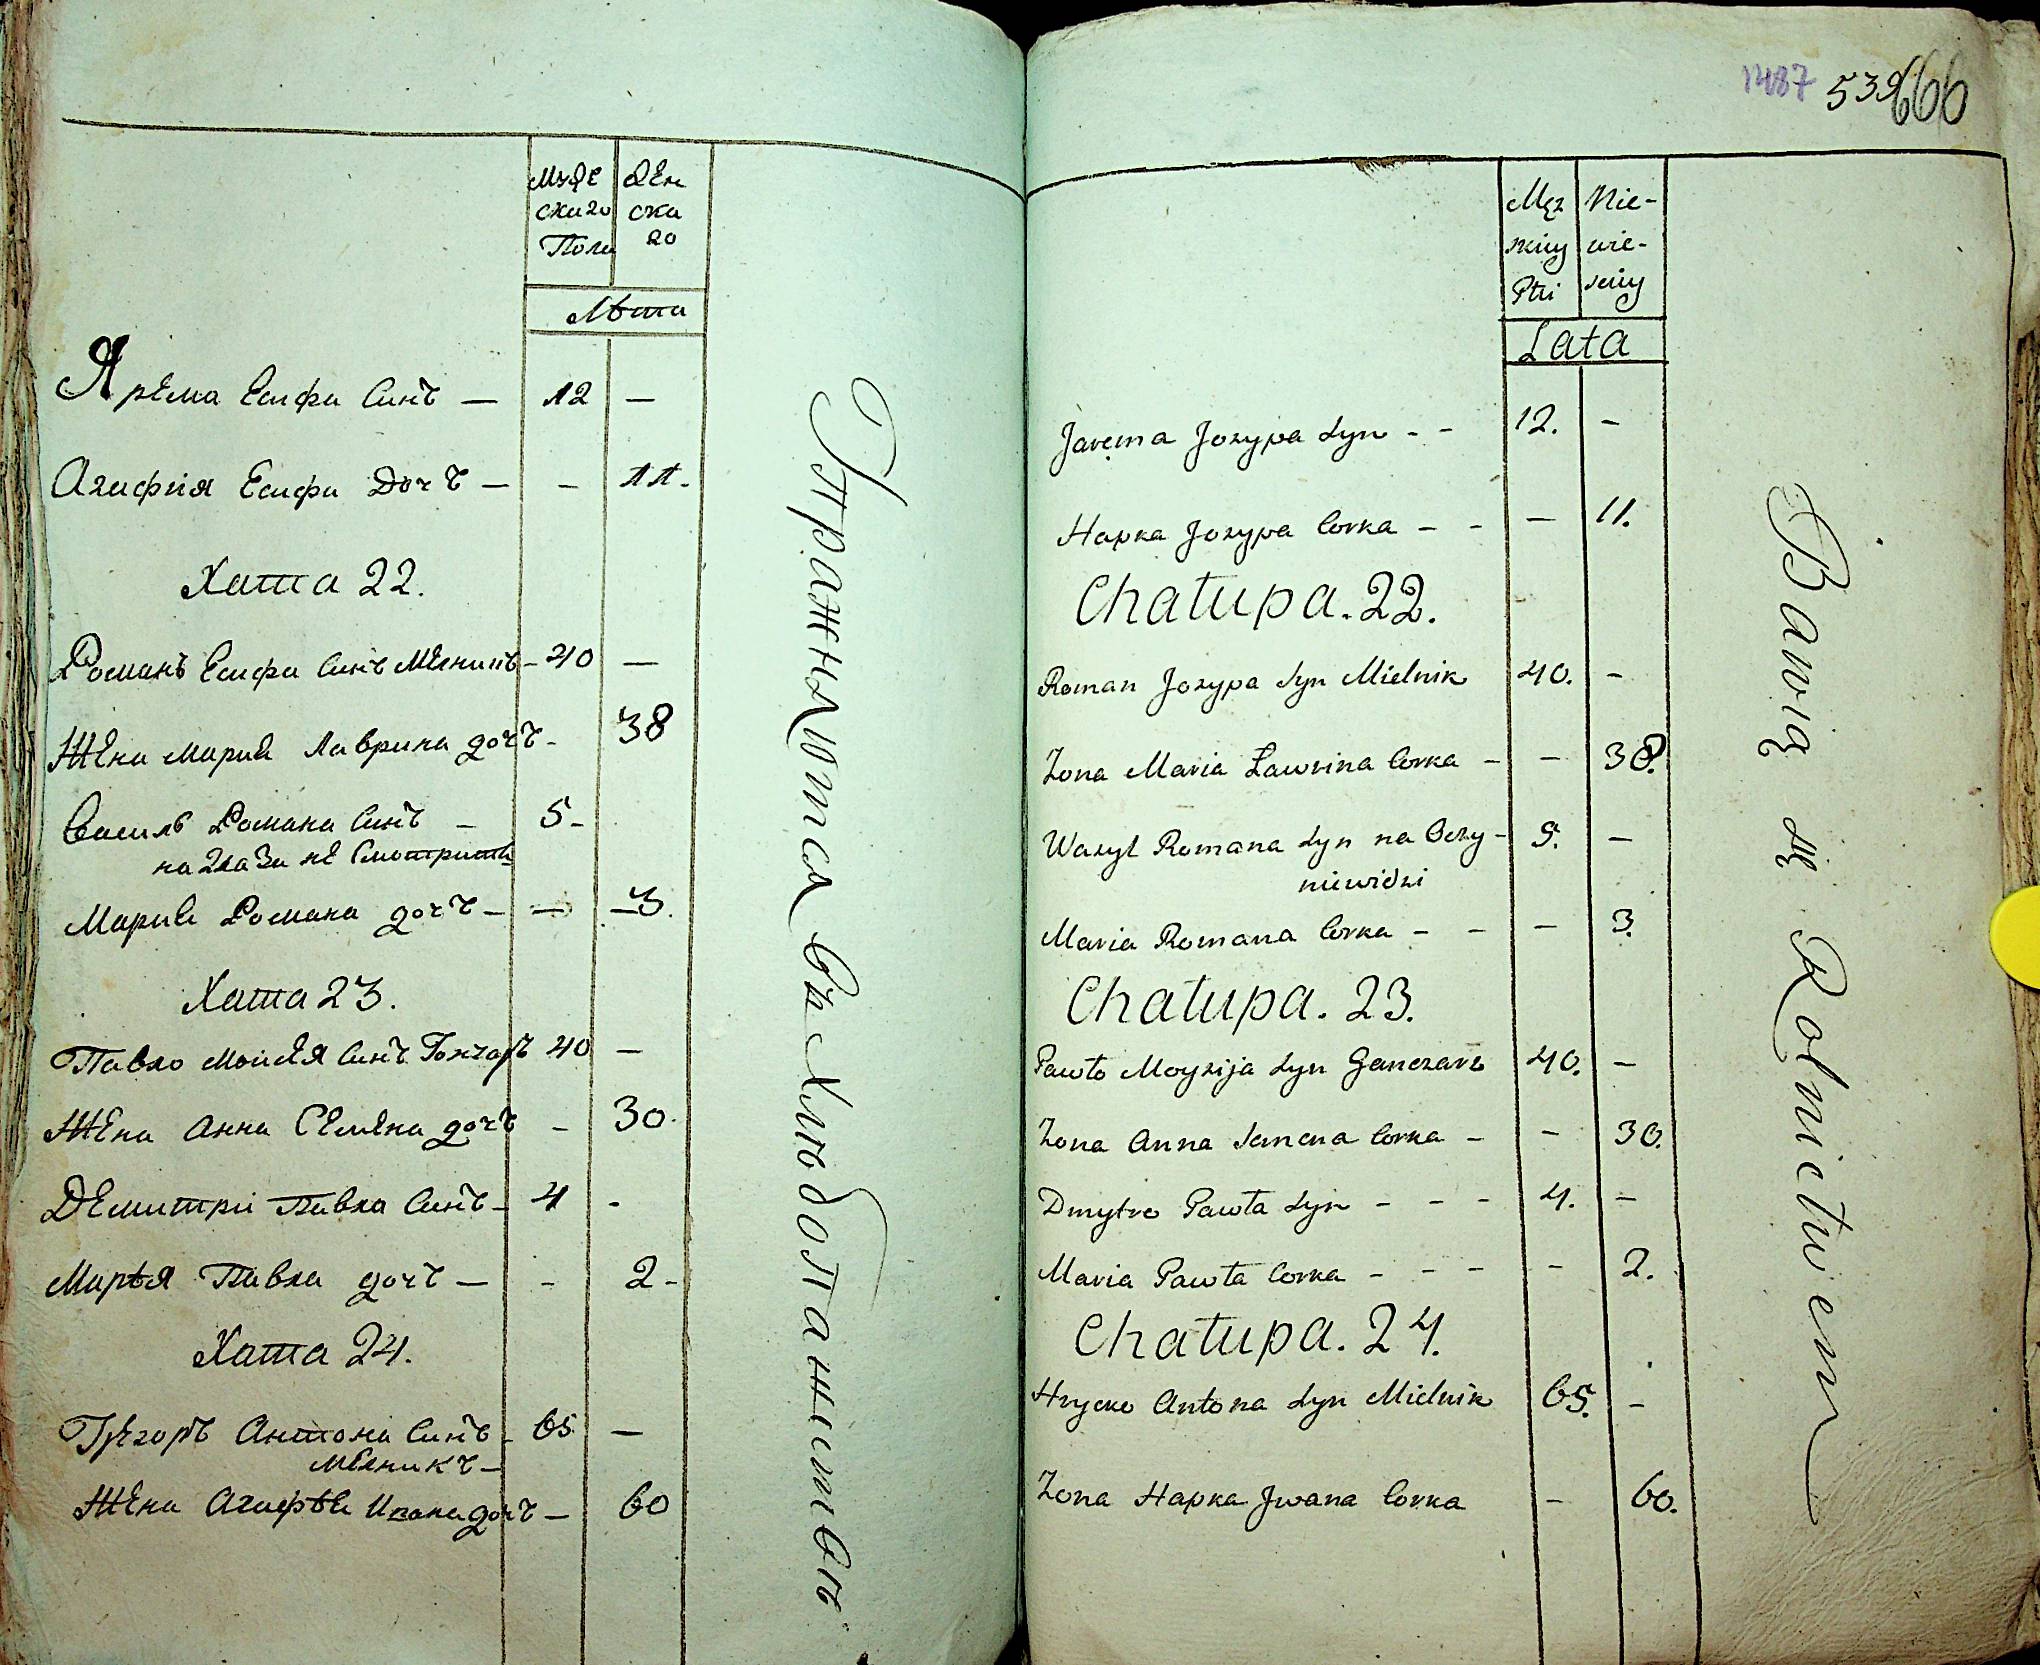 Муже
скаго
Пола
Жен
ска
го
Лѣта
Ярема Есифа Синъ — 12 —
Агафия Есифа Дочъ — — 11.
Хата 22.
Романъ Есифа Синъ Мелникъ — 40 —
Жена Мария Лаврина дочъ — 38
Василь Романа Синъ — 5 —
на глаза не Смотрить
Мария Романа дочъ — — 3.
Хата 23.
Павло Мойсея Синъ Гончаръ 40 —
Жена Анна Семена дочъ — 30.
Демитри Павла Синъ — 4 -
Марѣя Павла дочъ — - 2 -
Хата 24.
Грегоръ Антона Синъ - 65 —
Мелникъ —
Жена Агафѣя Ивана дочъ — 60
Упражняются въ хлѣбопашествѣ
1487 539 666
Męz
kiey
Płci
Nie-
wie-
sciey
Lata
Jarema Jozypa Syn - - 12. -
Hapka Jozypa Corka - - - 11.
Chałupa. 22.
Roman Jozypa Syn Mielnik 40. -
Zona Maria Ławrina Corka - - 38.
Wazyl Romana Syn na Oczy - 5. -
niewidzi
Maria Romana Corka - - - 3.
Chałupa. 23.
Pawło Moyzija Syn Ganczarz 40. -
Zona Anna Semena Corka - - 30.
Dmytro Pawła Syn - - - 4. -
Maria Pawła Corka - - - - 2.
Chałupa. 24.
Hrycko Antona Syn Mielnik 65. -
Zona Hapka Jwana Corka - 60.
Bawią się Rolnictwem